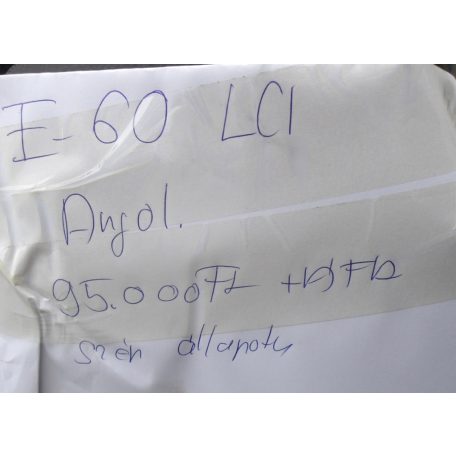 E-60 LCI
Angol.
95.000 Ft +ÁFA
szép állapotú